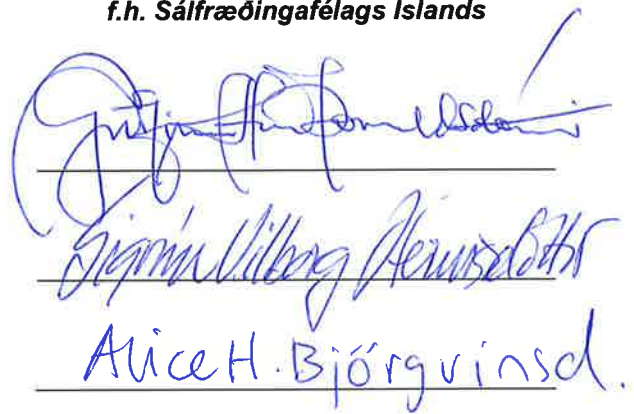 f.h. Sálfræðingafélags Islands
Sigrún Vilborg Heimisdóttir
Alice H. Björgvinsd.